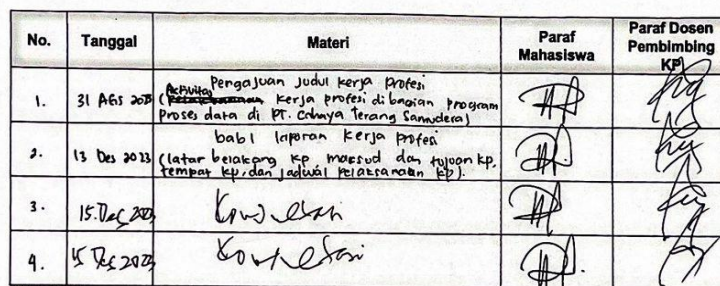 No. Tanggal Materi Paraf Mahasiswa Paraf Dosen Pembimbing KP
1. 31 Ags 2023 Pengajuan judul kerja profesi
(Aktivitas kerja profesi di bagian program
proses data di PT. Cahaya Terang Samudera)
2. 13 Des 2023 bab 1 laporan kerja profesi
(latar belakang kp, maksud dan tujuan kp,
tempat kp, dan jadwal pelaksanaan kp).
3. 15 Dec 2023
4. 15 Dec 2023